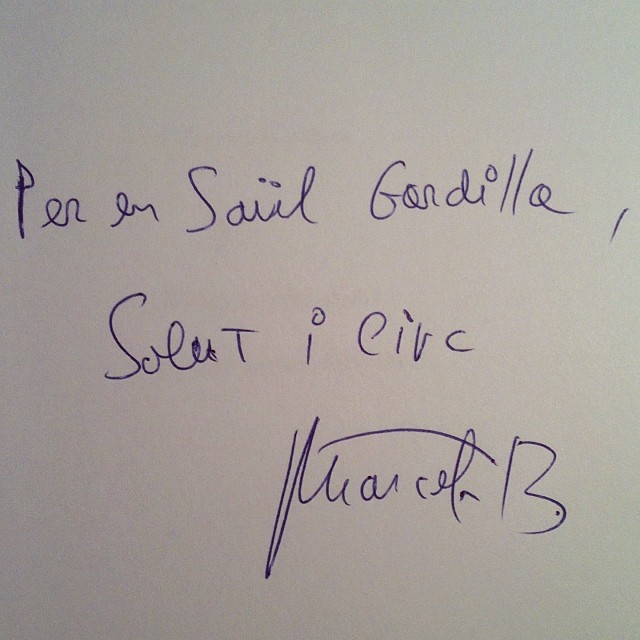 Per en Saül Gordillo,
Salut i circ
Marcel·lí B.